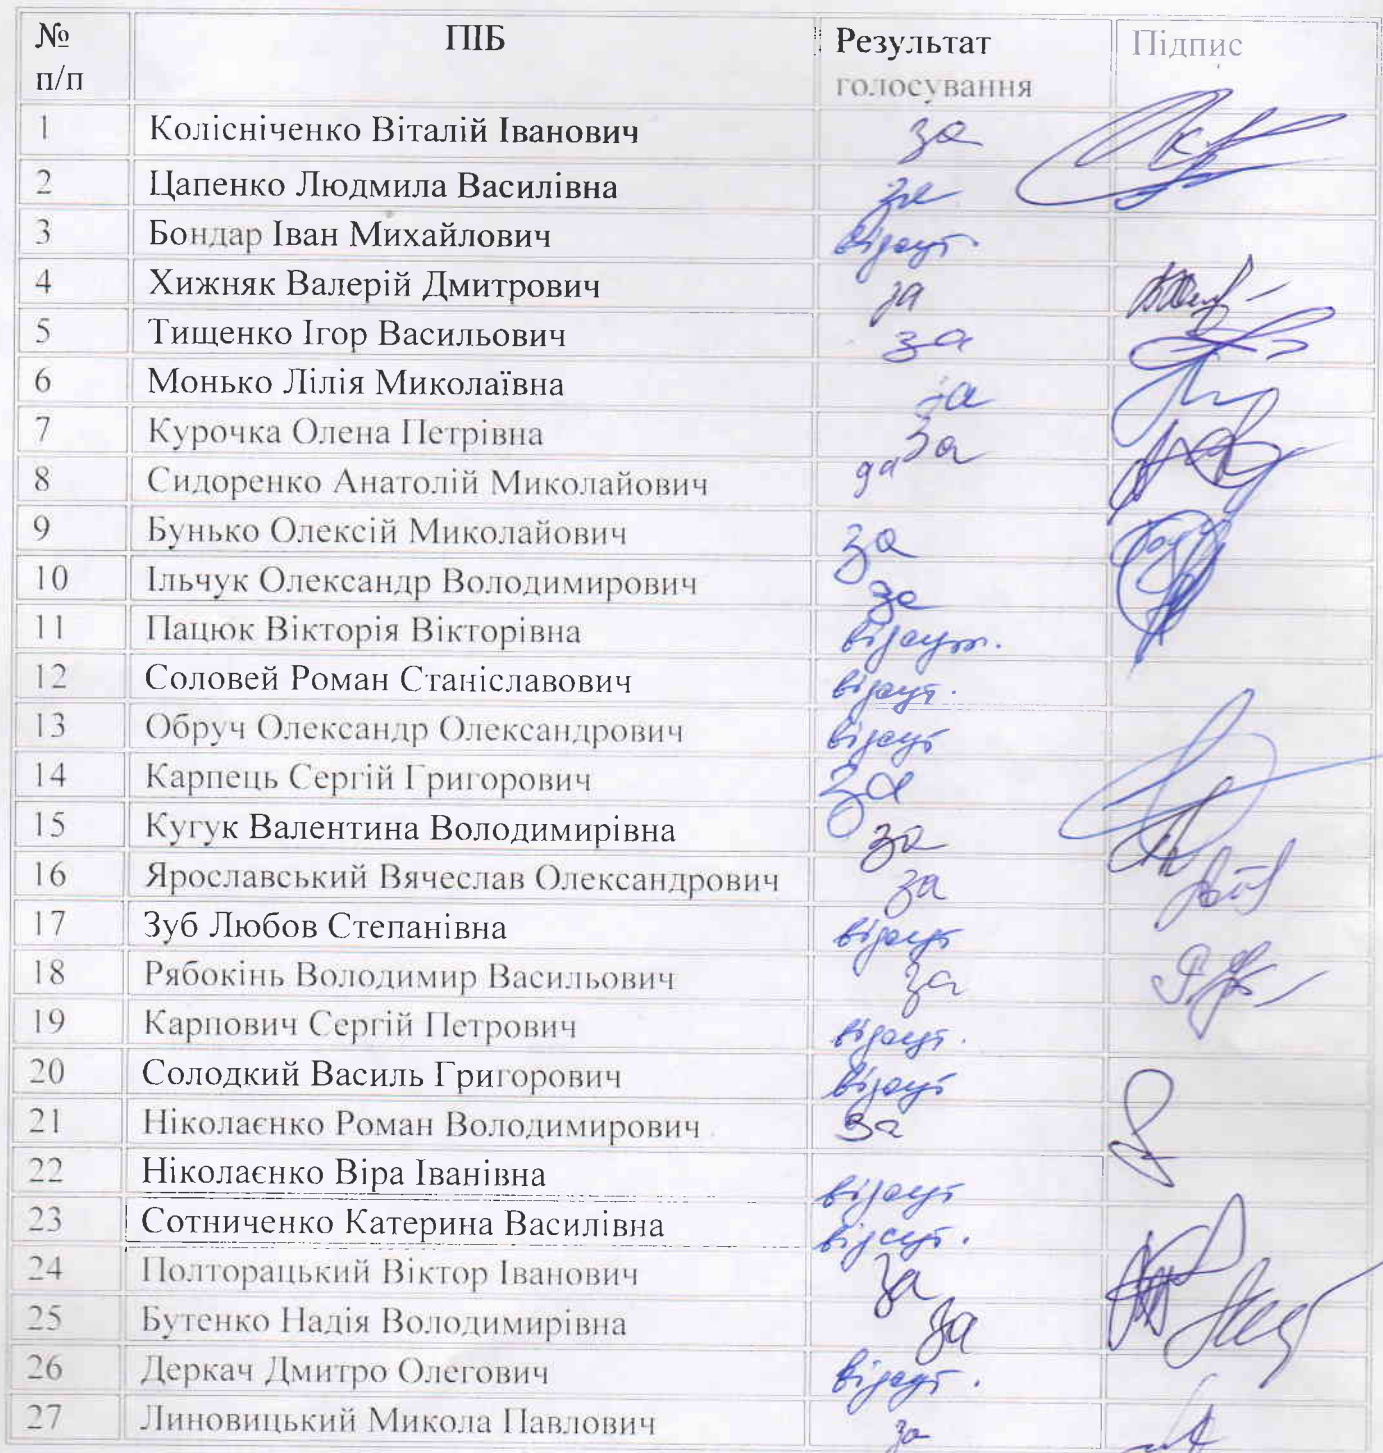 № п/п ПІБ Результат голосування Підпис
1 Колісніченко Віталій Іванович за
2 Цапенко Людмила Василівна за
3 Бондар Іван Михайлович відсут.
4 Хижняк Валерій Дмитрович за
5 Тищенко Ігор Васильович за
6 Монько Лілія Миколаївна за
7 Курочка Олена Петрівна за
8 Сидоренко Анатолій Миколайович
9 Бунько Олексій Миколайович за
10 Ільчук Олександр Володимирович за
11 Пацюк Вікторія Вікторівна відсут.
12 Соловей Роман Станіславович відсут.
13 Обруч Олександр Олександрович відсут
14 Карпець Сергій Григорович за
15 Кугук Валентина Володимирівна за
16 Ярославський Вячеслав Олександрович за
17 Зуб Любов Степанівна відсут
18 Рябокінь Володимир Васильович за
19 Карпович Сергій Петрович відсут.
20 Солодкий Василь Григорович відсут
21 Ніколаєнко Роман Володимирович за
22 Ніколаєнко Віра Іванівна відсут
23 Сотниченко Катерина Василівна відсут.
24 Полторацький Віктор Іванович за
25 Бутенко Надія Володимирівна за
26 Деркач Дмитро Олегович відсут.
27 Линовицький Микола Павлович за